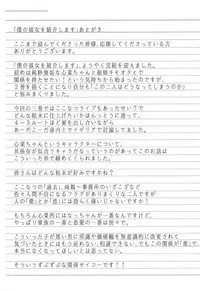 「僕の彼女を紹介します」あとがき
ここまで読んでくださった皆様、応援してくださっている方
ありがとうございます。
「僕の彼女を紹介します」、ようやく完結を迎えました。
初めは純粋無垢な心菜ちゃんと根暗キモオタとで
関係を持たせたい！という気持ちから始まったのですが、
2巻を描くことになり自分も「この二人はどうなってしまうのか」
と悩みまくりました。
今回の三巻ではここなつライブもあったせいで
どんな結末に仕上げたいかほんっとうに迷って、
4〜5ルートほど案を出し合いながら
あーだこーだ身内とサイゼリアで討論してました。
心菜ちゃんというキャラクターについて、
具体的なキャラがないっていうのがあってこのお話は
こういった形で締めくくられました。
皆さんはどんな結末が好みですかね？
ここなつの「過去」、両親〜事務所のいざこざなど
色々人間不信になるフラグがありまくりな二人ですが
人の「愛」とか「恋」は恐らく疎いじゃないですか！
もちろん心菜的にはなっちゃんが一番なんですけど、
やっぱり家族の一番と恋愛の一番って違くて。
こういった子が悪い男に常識や価値観を無意識的に改変されて
気づいたときにはもう戻れない、相談できない、でもこの関係が「悪」で、
本当になくなってほしくないとは思ってない。
そういううずうずな関係サイコーです！！